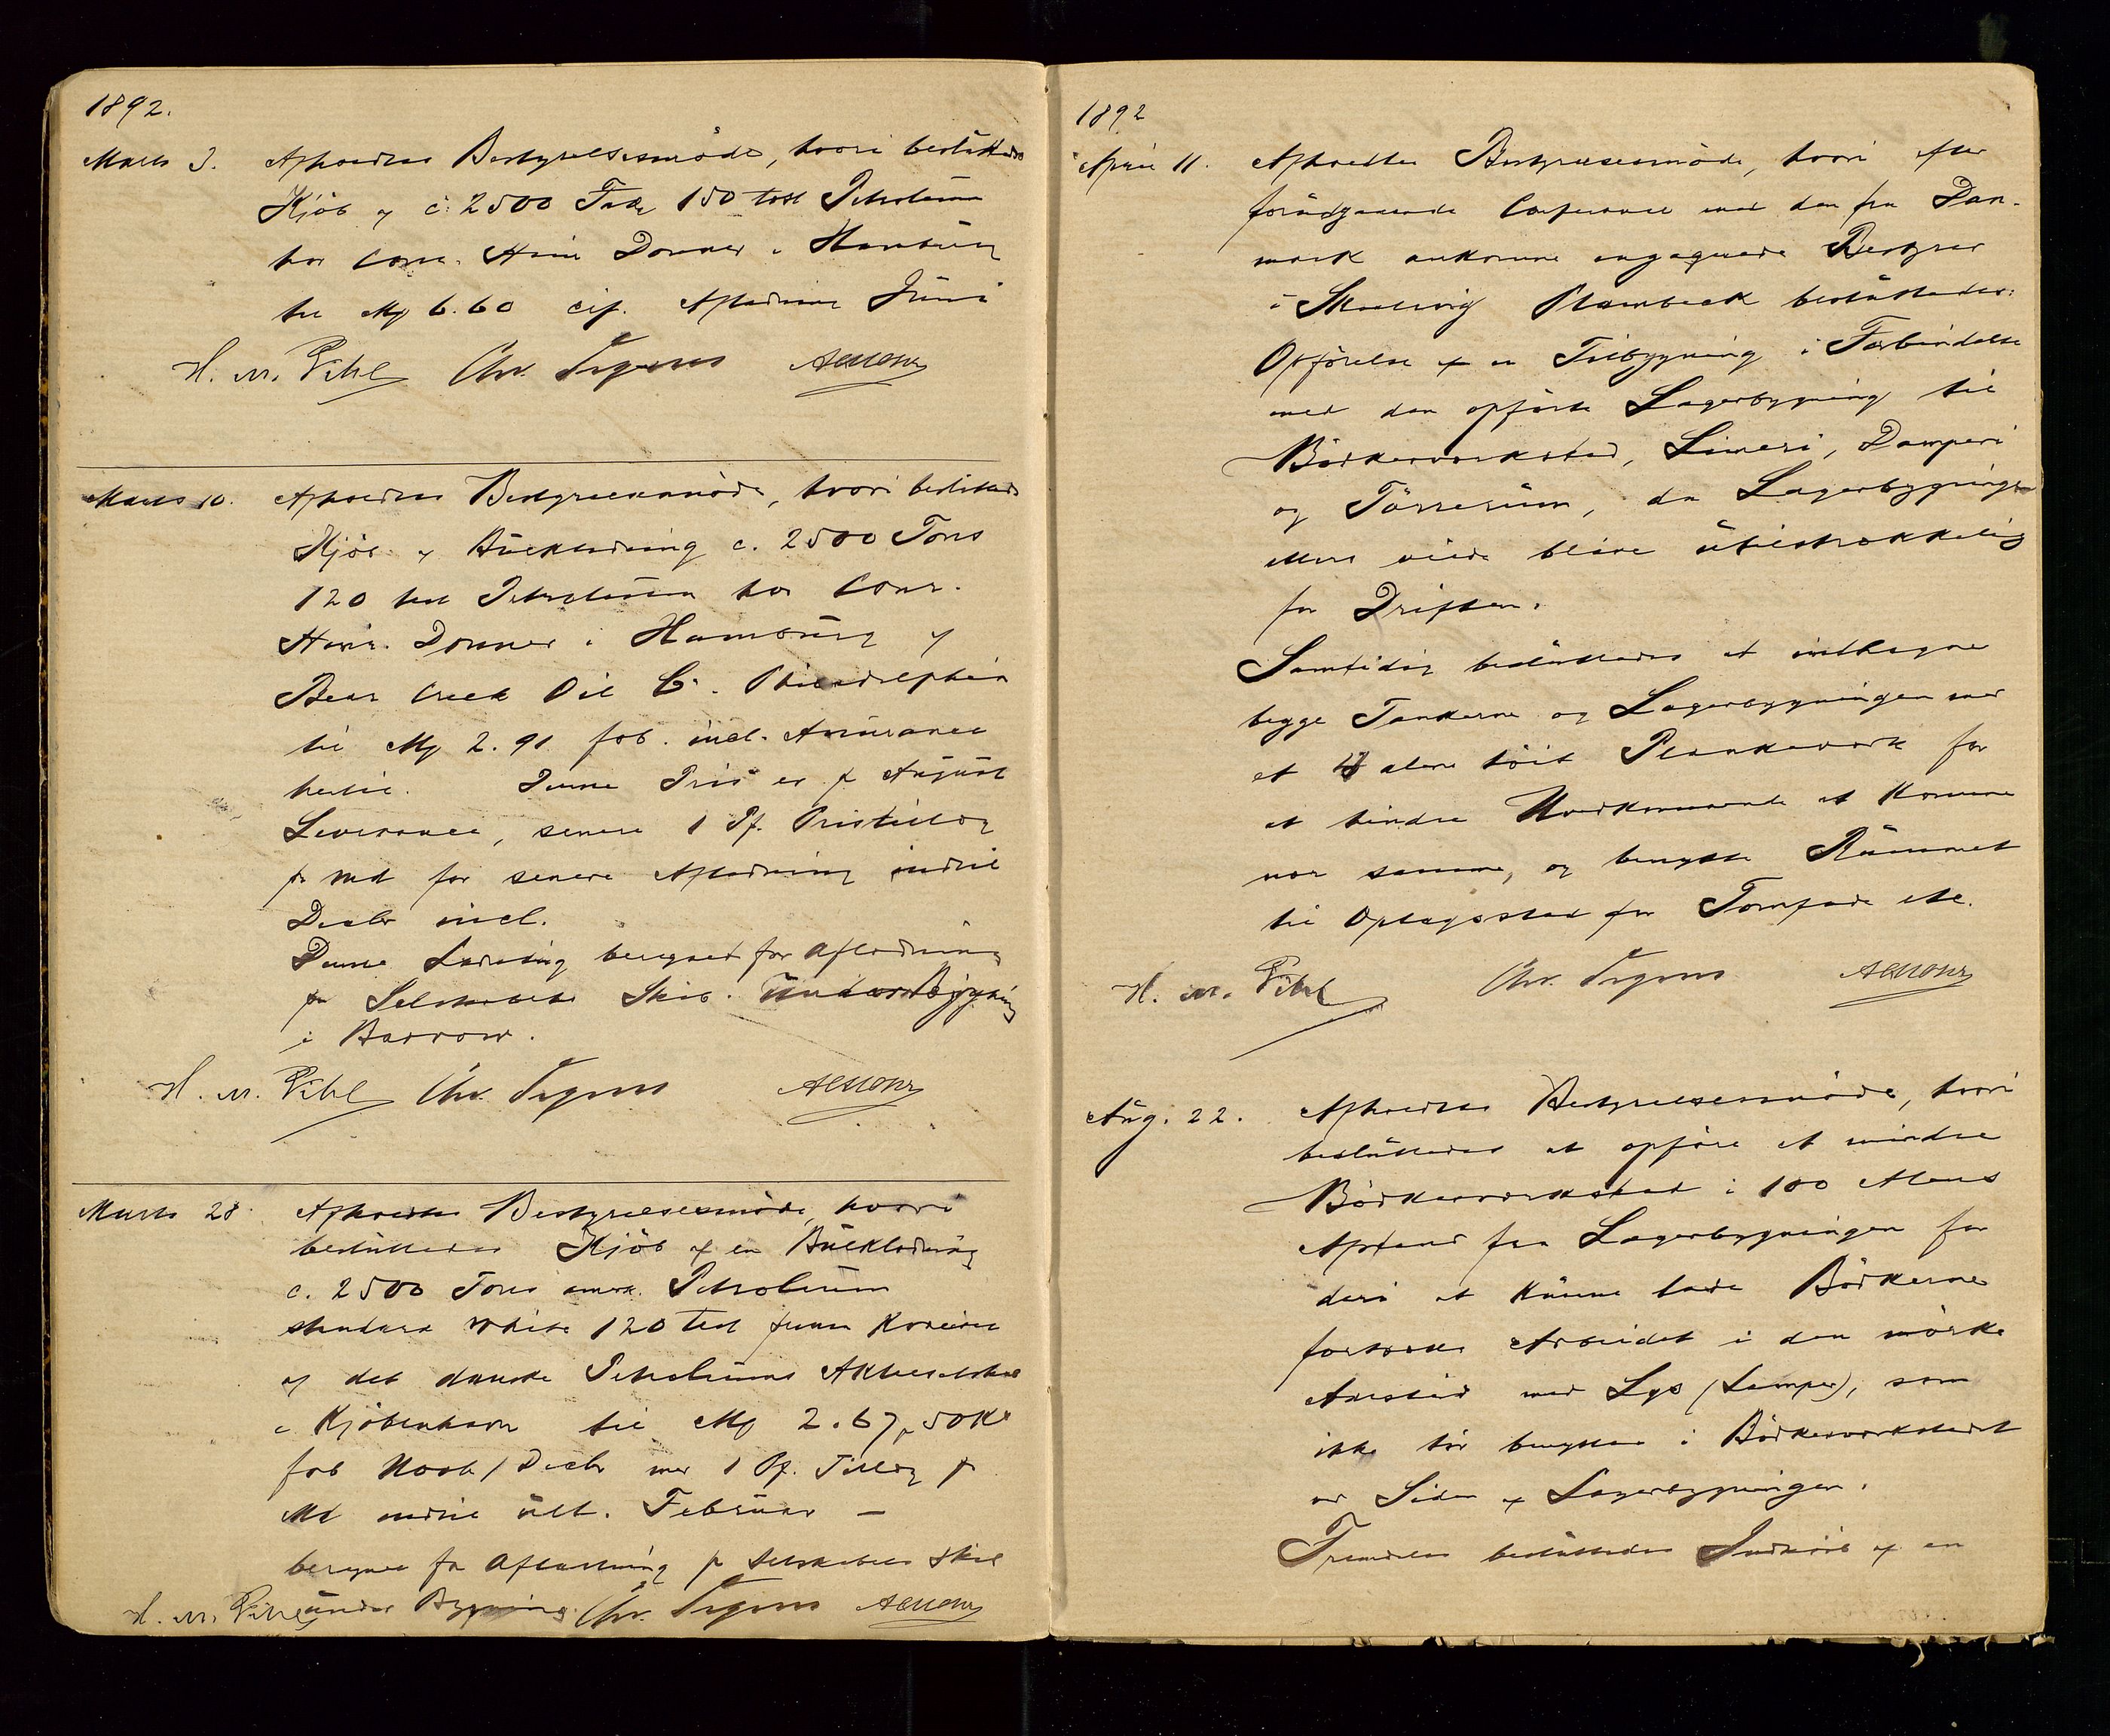 1892.
Marts 3. Afholdtes Bestyrelsesmöde, hvori besluttedes
Kjöb af c. 2500 Fade 150 test Petroleum
hos Conr. Hinr. Donner i Hamburg
til Mk 6.60 cif. Afladning Juni
H. M. Pihl Chr. Sigmus
Marts 10. Afholdtes Bestyrelsesmöde, hvori besluttedes
Kjöb af Bulkladning c. 2500 Tons
120 test Petroleum hos Conr.
Hinr. Donner i Hamburg af
Bear Creek Oil Co. Philadelphia
til Mk 2.91 fob. incl. Assurance
hertil. Denne Pris er pr August
Leverance, senere 1 Pf. Pristillæg
pr Md for senere Afladning indtil
Decbr incl.
Denne Ladning beregnet for Afladning
pr Selskabets Skib. under Bygning
i Barrow.
H. M. Pihl Chr. Sigmus
Marts 28. Afholdtes Bestyrelsesmöde, hvori
besluttedes Kjöb af en Bulkladning
c. 2500 Tons amrk. Petroleum
standard white 120 test
af det danske Petroleums Aktieselskab
i Kjöbenhavn til Mk 2.67,50
fob Novb/Decbr med 1 Pf. Tillæg pr
Md indtil ult. Februar —
beregnet for Afladning pr Selskabets Skib
H. M. Pihl under Bygning. Chr. Sigmus
1892
April 11. Afholdtes Bestyrelsesmöde, hvori efter
forudgaaende Conferance med den fra Dan-
mark ankomne engagerede Bestyrer
i Skælevig Plambeck besluttedes:
Opförelse af en Tilbygning i Forbindelse
med den opförte Lagerbygning til
Bödkerværksted, Limeri, Damperi
og Törrerum, da Lagerbygningen
ellers vilde blive utilstrækkelig
for Driften.
Samtidig besluttedes at indhegne
begge Tankerne og Lagerbygningen med
et 4 alens höit Plankeværk for
at hindre Uvedkommende at komme
nær samme, og benytte Rummet
til Oplagssted for Tomfade etc.
H. M. Pihl Chr. Sigmus
Aug. 22. Afholdtes Bestyrelsesmöde, hvori
besluttedes at opföre et mindre
Bödkerværksted i 100 Alens
Afstand fra Lagerbygningen for
deri at kunne lade Bödkerne
fortsætte Arbeidet i den mörke
Aarstid med Lys (Lamper), som
ikke bör benyttes i Bödkerværkstedet
ved Siden af Lagerbygningen.
Fremdeles besluttedes Indkjöb af en